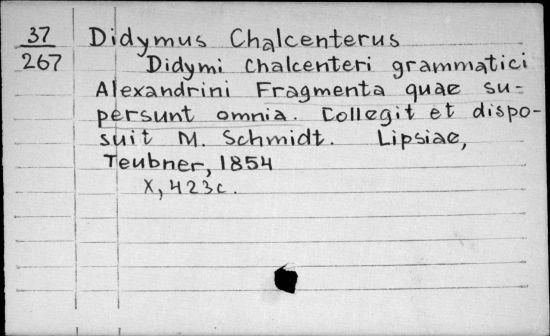 37
267
Didymus Chalcenterus
Didymi Chalcenteri grammatici
Alexandrini Fragmenta quae su=
persunt omnia. Collegit et dispo-
suit M. Schmidt. Lipsiae,
Teubner, 1854
X, 423c.